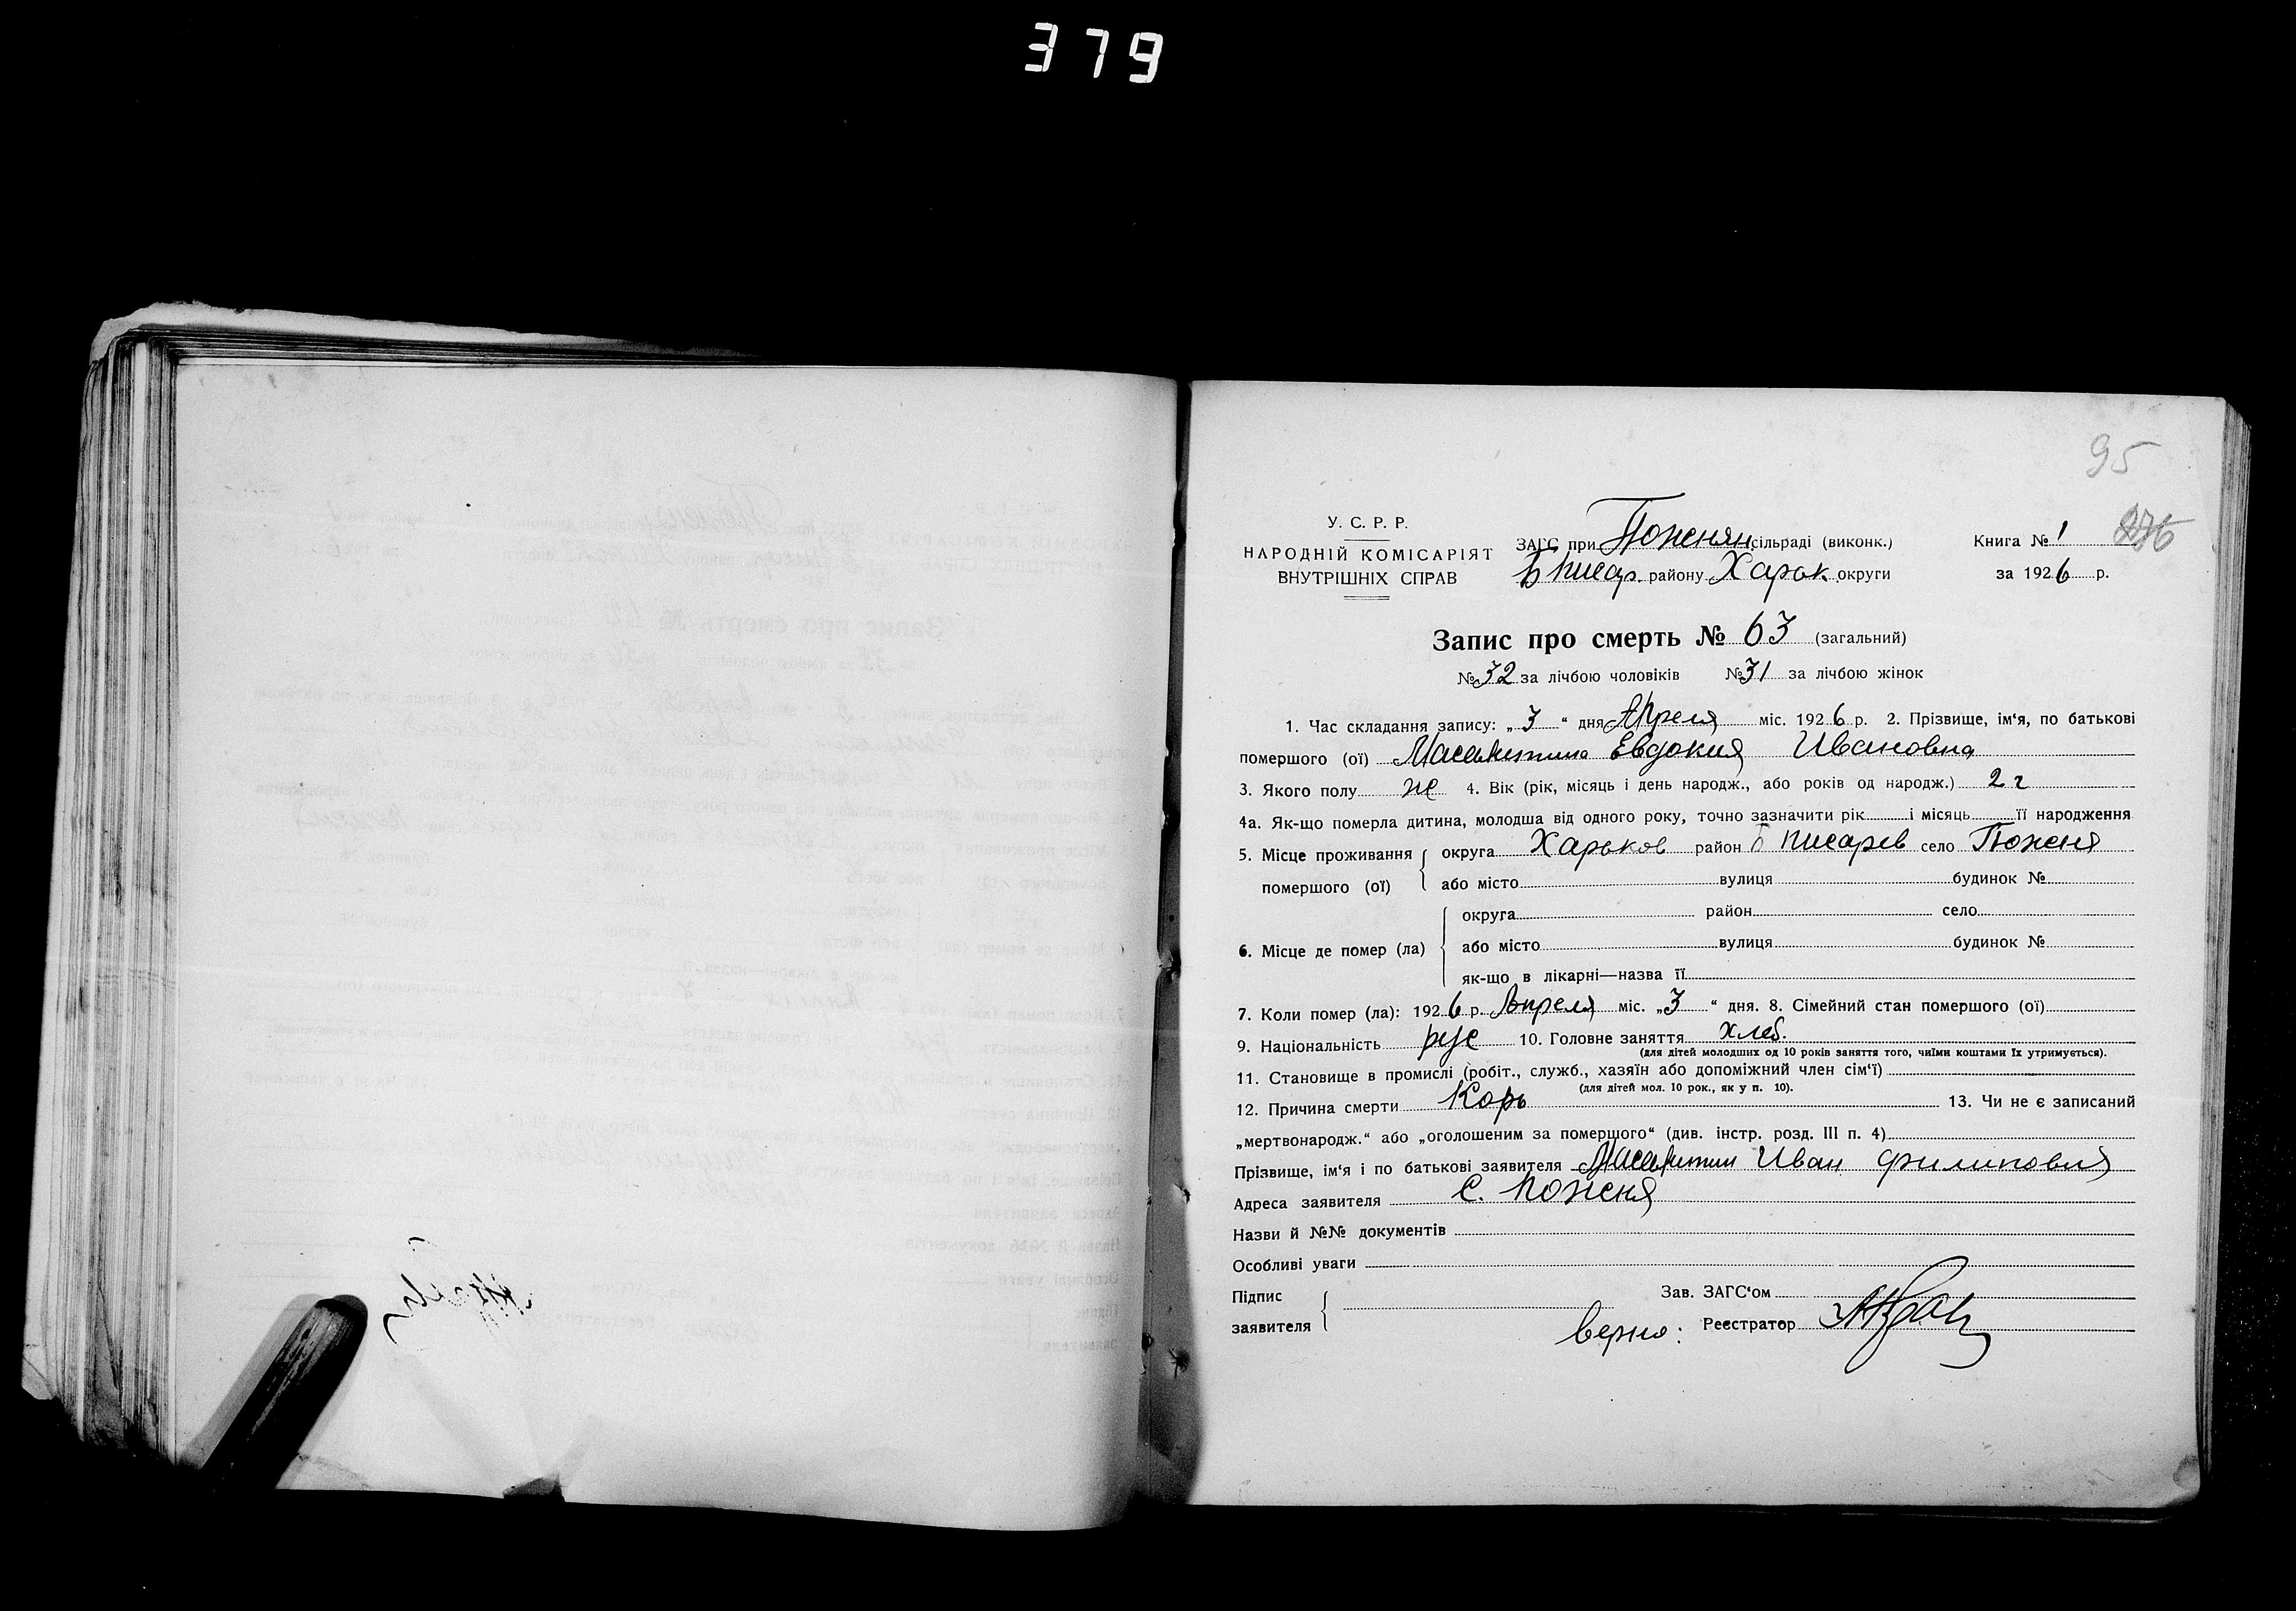 379
95
У. С. Р. Р.
НАРОДНІЙ КОМІСАРІЯТ
ВНУТРІШНІХ СПРАВ
ЗАГС при Поженян сільраді (виконк.)
Б Писар. району Харьк. округи
Книга № 1
за 1926 р.
Запис про смерть № 63 (загальний)
№ 32 за лічбою чоловіків № 31 за лічбою жінок
1. Час складання запису: „3“ дня Апреля міс. 1926 р. 2. Прізвище, ім‘я, по батькові
помершого (ої) Евдокия Ивановна
3. Якого полу ж 4. Вік (рік, місяць і день народж., або років од народж.) 2 г
4а. Як-що померла дитина, молодша від одного року, точно зазначити рік і місяць її народження
5. Місце проживання помершого (ої)
округа Харьков район Б Писарев село Поженя
або місто вулиця будинок №
6. Місце де помер (ла)
округа район село
або місто вулиця будинок №
як-що в лікарні—назва її
7. Коли помер (ла): 1926 р. Апреля міс. „3“ дня. 8. Сімейний стан помершого (ої)
9. Національність рус 10. Головне заняття Хлеб.
(для дітей молодших од 10 років заняття того, чиїми коштами їх утримується).
11. Становище в промислі (робіт., служб., хазяїн або допоміжний член сім‘ї)
(для дітей мол. 10 рок., як у п. 10).
12. Причина смерти Корь 13. Чи не є записаний
„мертвонародж.“ або „оголошеним за помершого“ (див. інстр. розд. III п. 4)
Прізвище, ім‘я і по батькові заявителя Иван Филипович
Адреса заявителя С. Поженя
Назви й №№ документів
Особливі уваги
Підпис заявителя
Зав. ЗАГС‘ом
Верно: Реєстратор